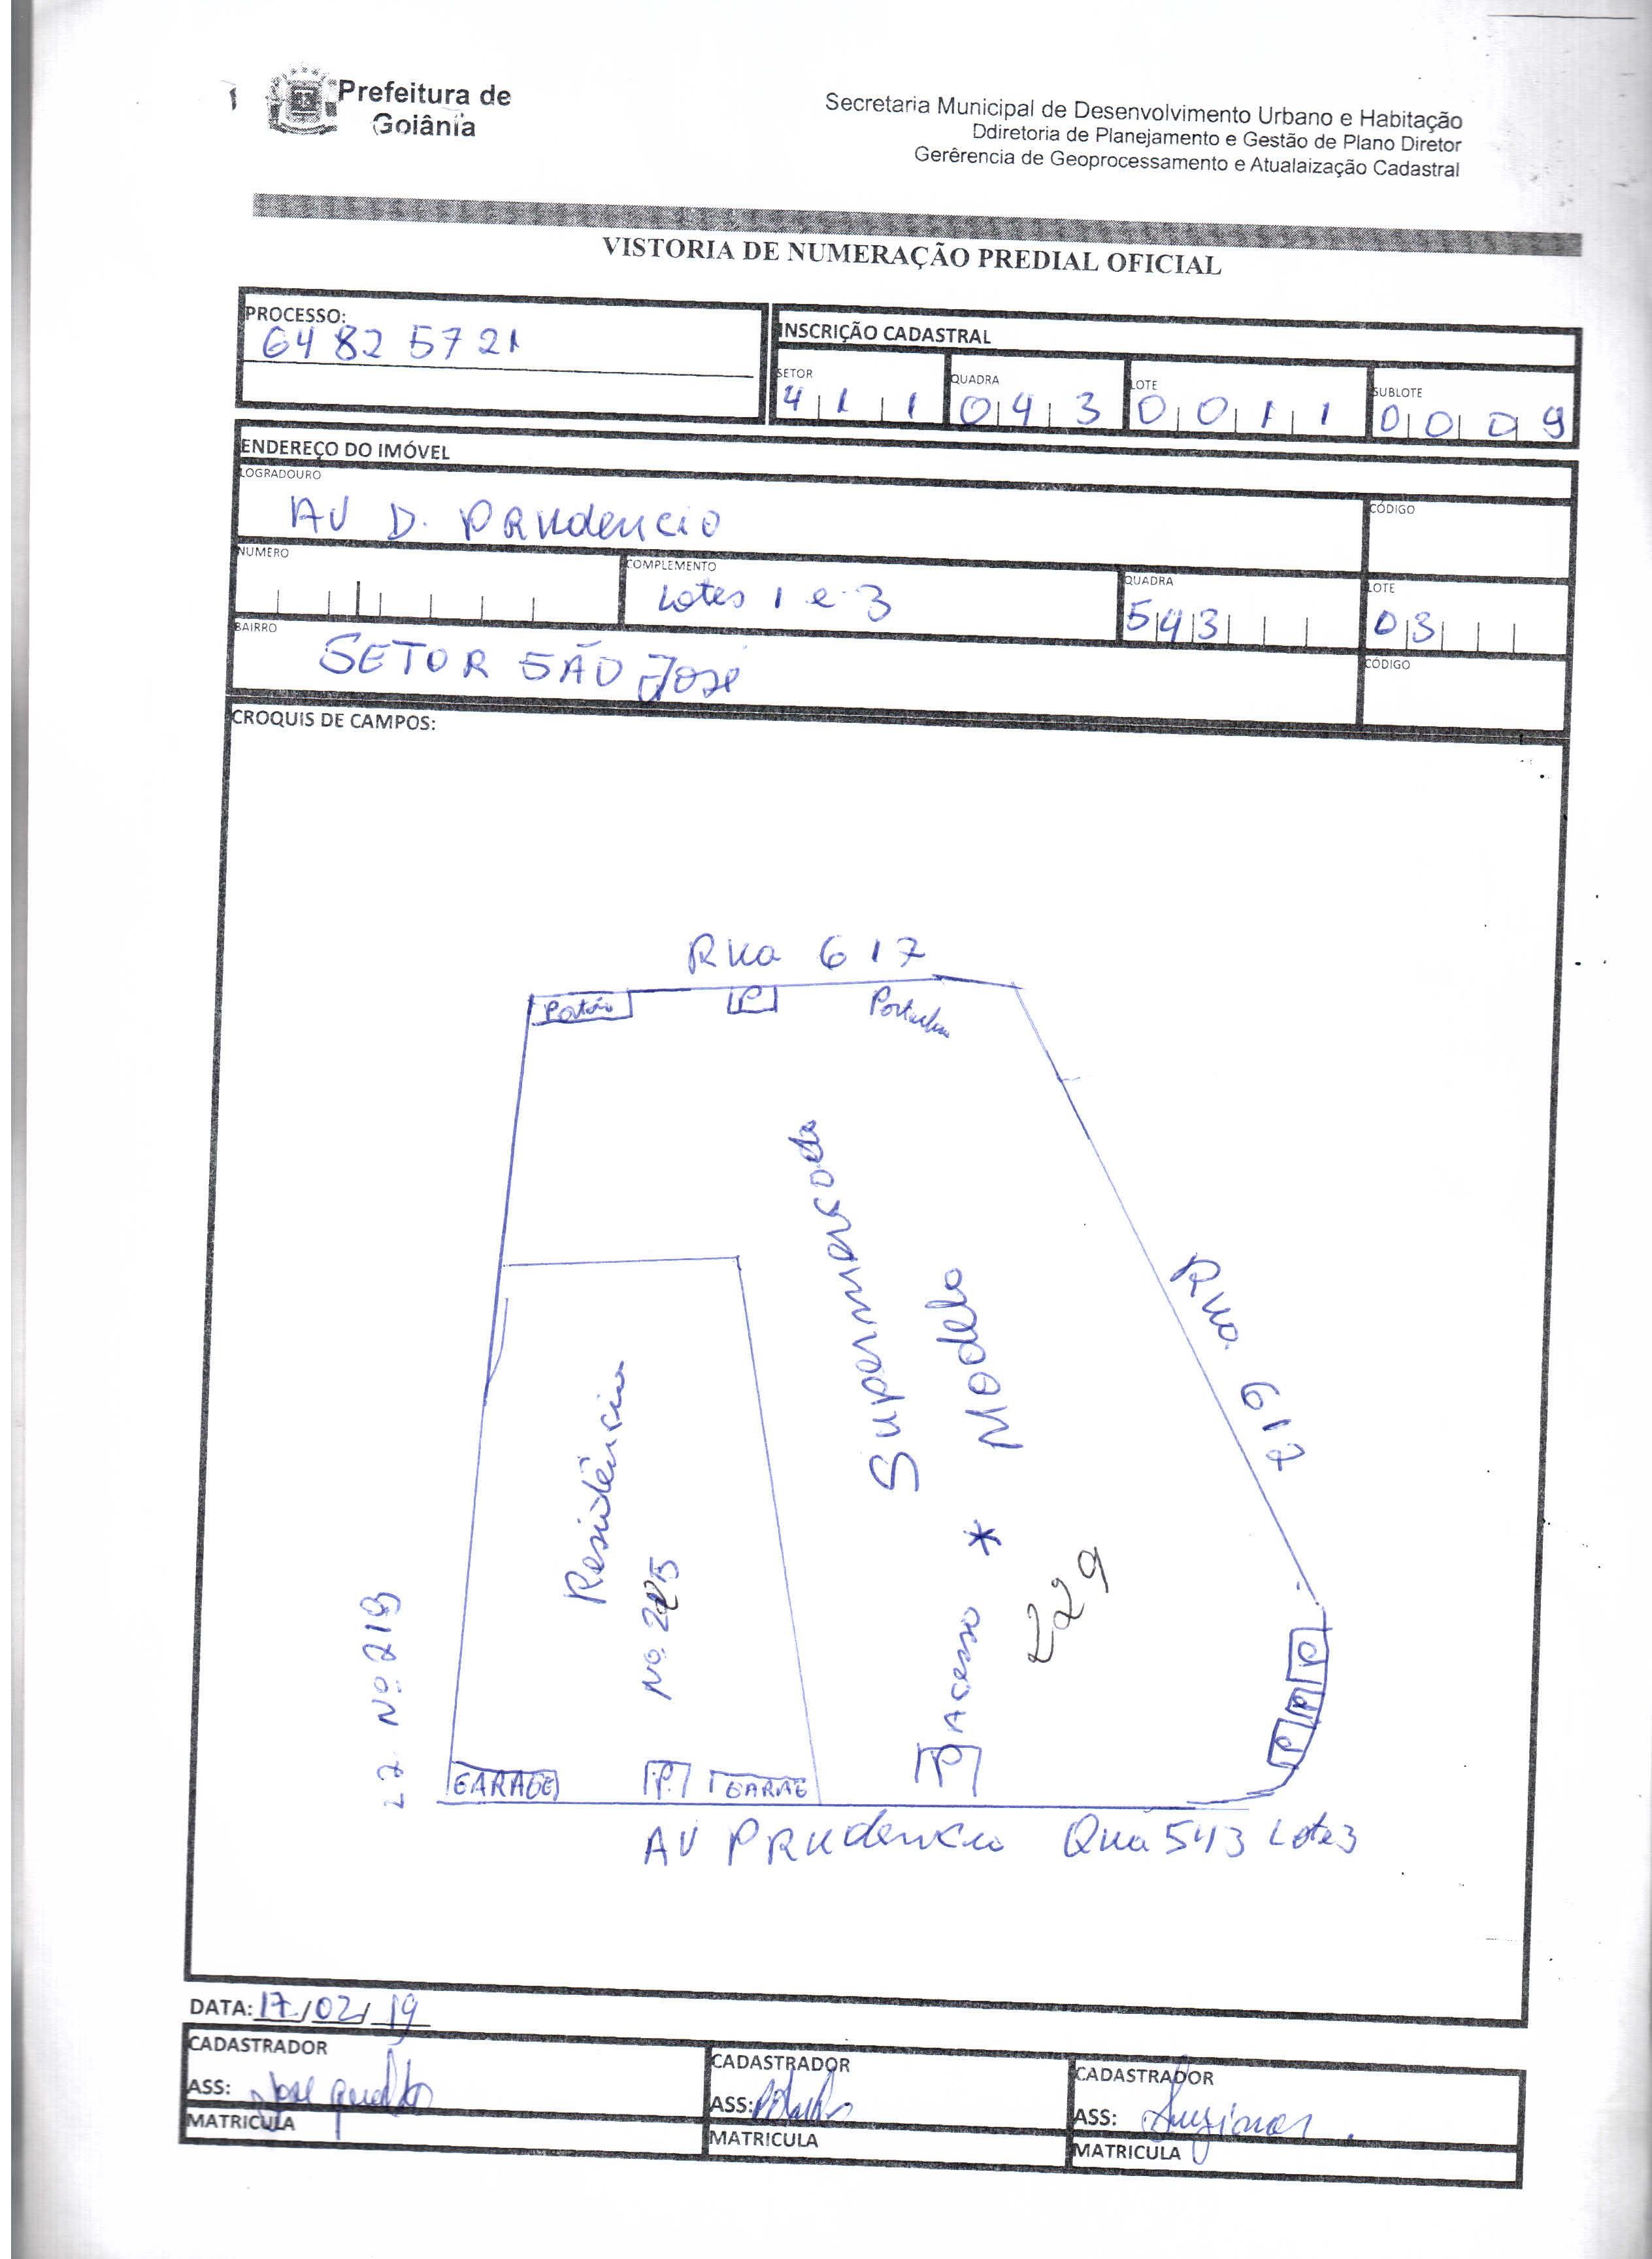 Prefeitura de
Goiânia
Secretaria Municipal de Desenvolvimento Urbano e Habitação
Ddiretoria de Planejamento e Gestão de Plano Diretor
Gerêrencia de Geoprocessamento e Atualaização Cadastral
VISTORIA DE NUMERAÇÃO PREDIAL OFICIAL
PROCESSO:
64 82 57 21
INSCRIÇÃO CADASTRAL
SETOR
4 1 1
QUADRA
0 4 3
LOTE
0 0 1 1
SUBLOTE
0 0 0 9
ENDEREÇO DO IMÓVEL
LOGRADOURO
AV D. PRudencio
CÓDIGO
NUMERO
COMPLEMENTO
Lotes 1 e 3
QUADRA
5 4 3
LOTE
0 3
BAIRRO
SETOR SÃO José
CÓDIGO
CROQUIS DE CAMPOS:
Rua 617
Portão
P
Supermercado
Modelo
Rua 617
Residência
No. 225
L2 No. 219
Acesso *
229
P
P
P
GARAGE
P.
GARAE
P
AV PRudencio Qua 543 Lote 3
DATA: 17/02/19
CADASTRADOR
ASS: Jose
MATRICULA
CADASTRADOR
ASS:
MATRICULA
CADASTRADOR
ASS:
MATRICULA